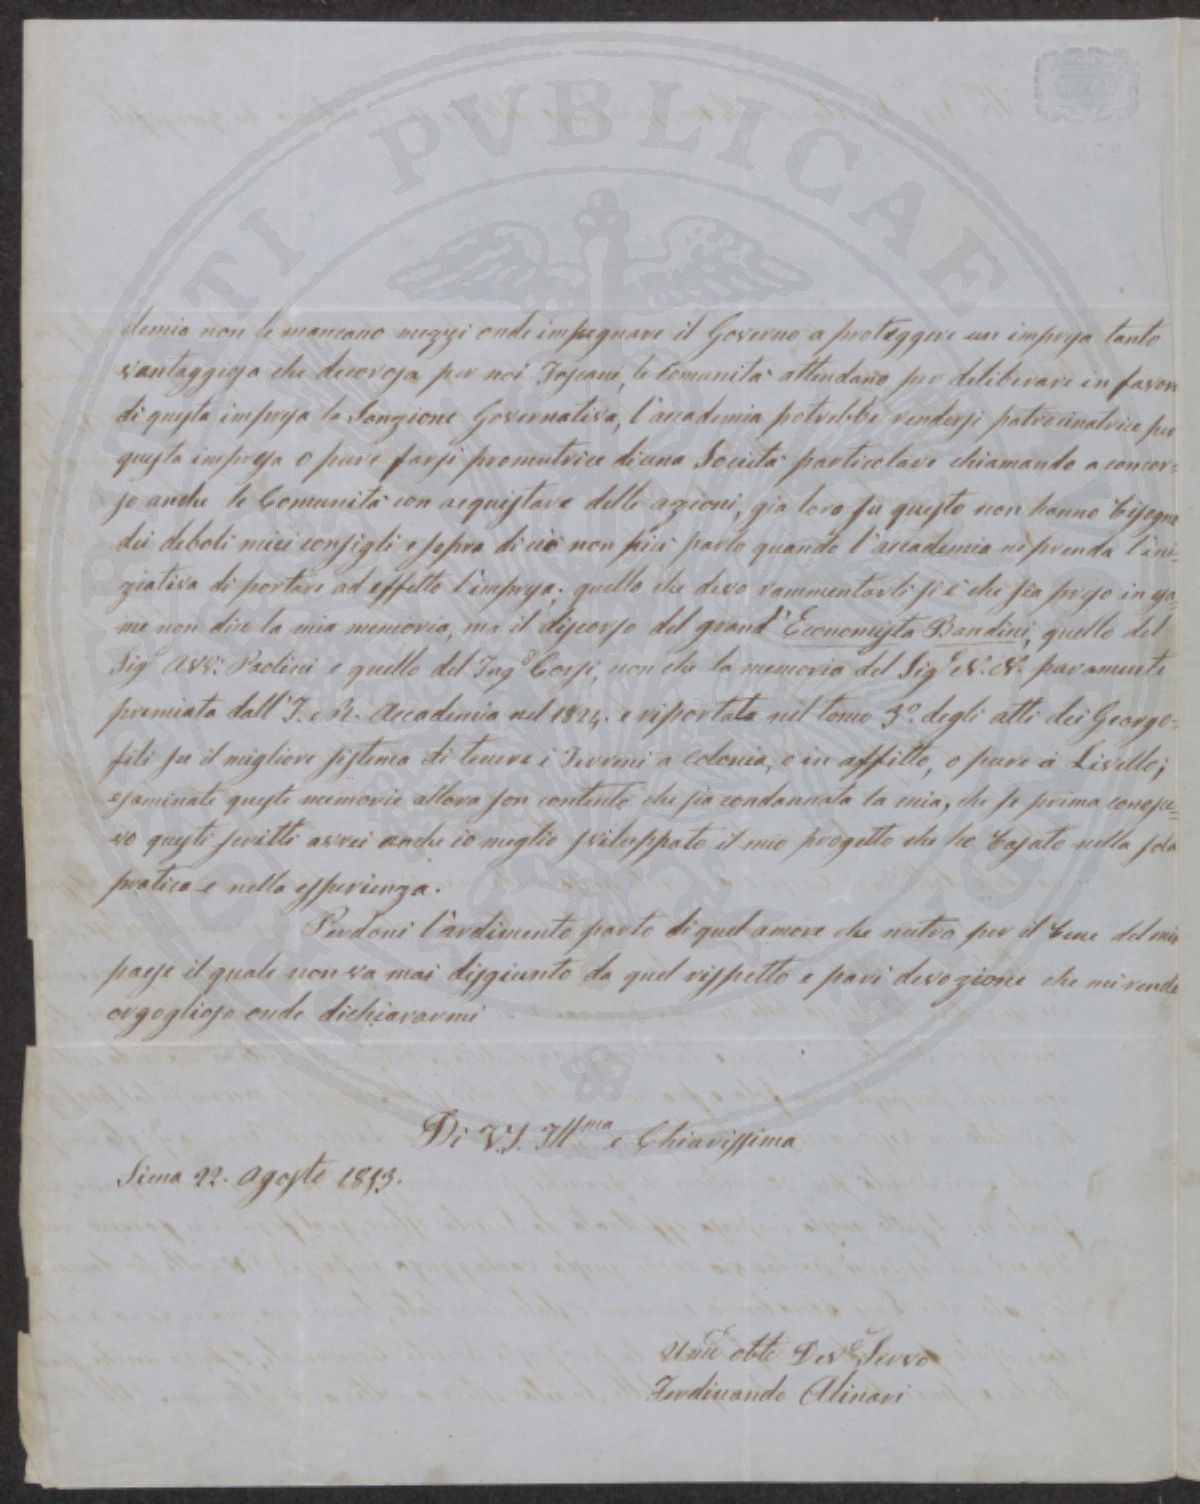 PROSPERITATI PUBLICAE AUGENDAE
demia non le mancano mezzi onde impegnare il Governo a proteggere un impresa tanto
vantaggiosa che decorosa per noi Toscani, le Comunità attendano per deliberare in favore
di questa impresa la Sanzione Governativa, l'accademia potrebbe rendersi patrocinatrice per
questa impresa o pure farsi promutrice di una Società particolare chiamando a concor=
so anche le Comunità con acquistare delle azioni, gia loro su questo non hanno bisogno
dei deboli miei consigli e sopra di ciò non più parlo quando l'accademia ne prenda l'ini=
ziativa di portare ad effetto l'impresa; quello che devo rammentarli si è che sia preso in esa=
me non dico la mia memoria, ma il discorso del grand'Economista Bandini, quello del
Sig.e Avv: Paolini e quello del Ing.e Corsi, non che la memoria del Sig.e N. N. paramente
premiata dall'I. e R. Accademia nel 1824. e riportata nel tomo 3.o degli atti dei Georgo=
fili su il migliore sistema di tenere i Terreni a colonia, o in affitto, o pure a Livello;
esaminate queste memorie allora son contento che sia condannata la mia, che se prima conosce=
vo questi scritti avrei anche io meglio sviluppato il mio progetto che ho basato nella sola
pratica e nella esperienza.
Perdoni l'ardimento parto di quel amore che nutro per il bene del mio
paese il quale non va mai disgiunto da quel rispetto e pari devozione che mi rende
orgoglioso onde dichiararmi
Di V.S. Ill.ma e Chiarissima
Siena 22. Agosto 1853.
Um.e obb.e Dev.e Servo
Ferdinando Alinari